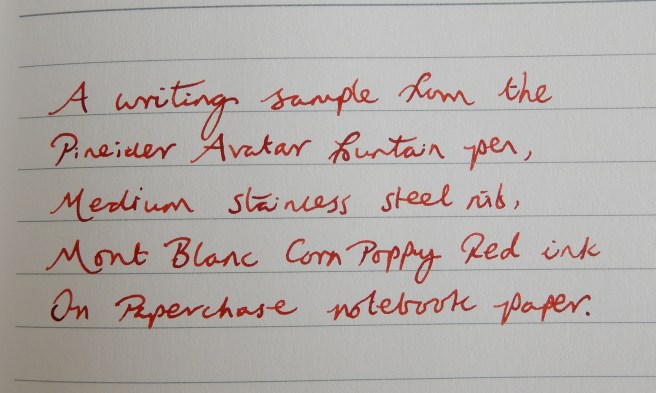 A writing sample from the
Pineider Avatar fountain pen,
Medium stainless steel nib,
Mont Blanc Corn Poppy Red ink
On Paperchase notebook paper.